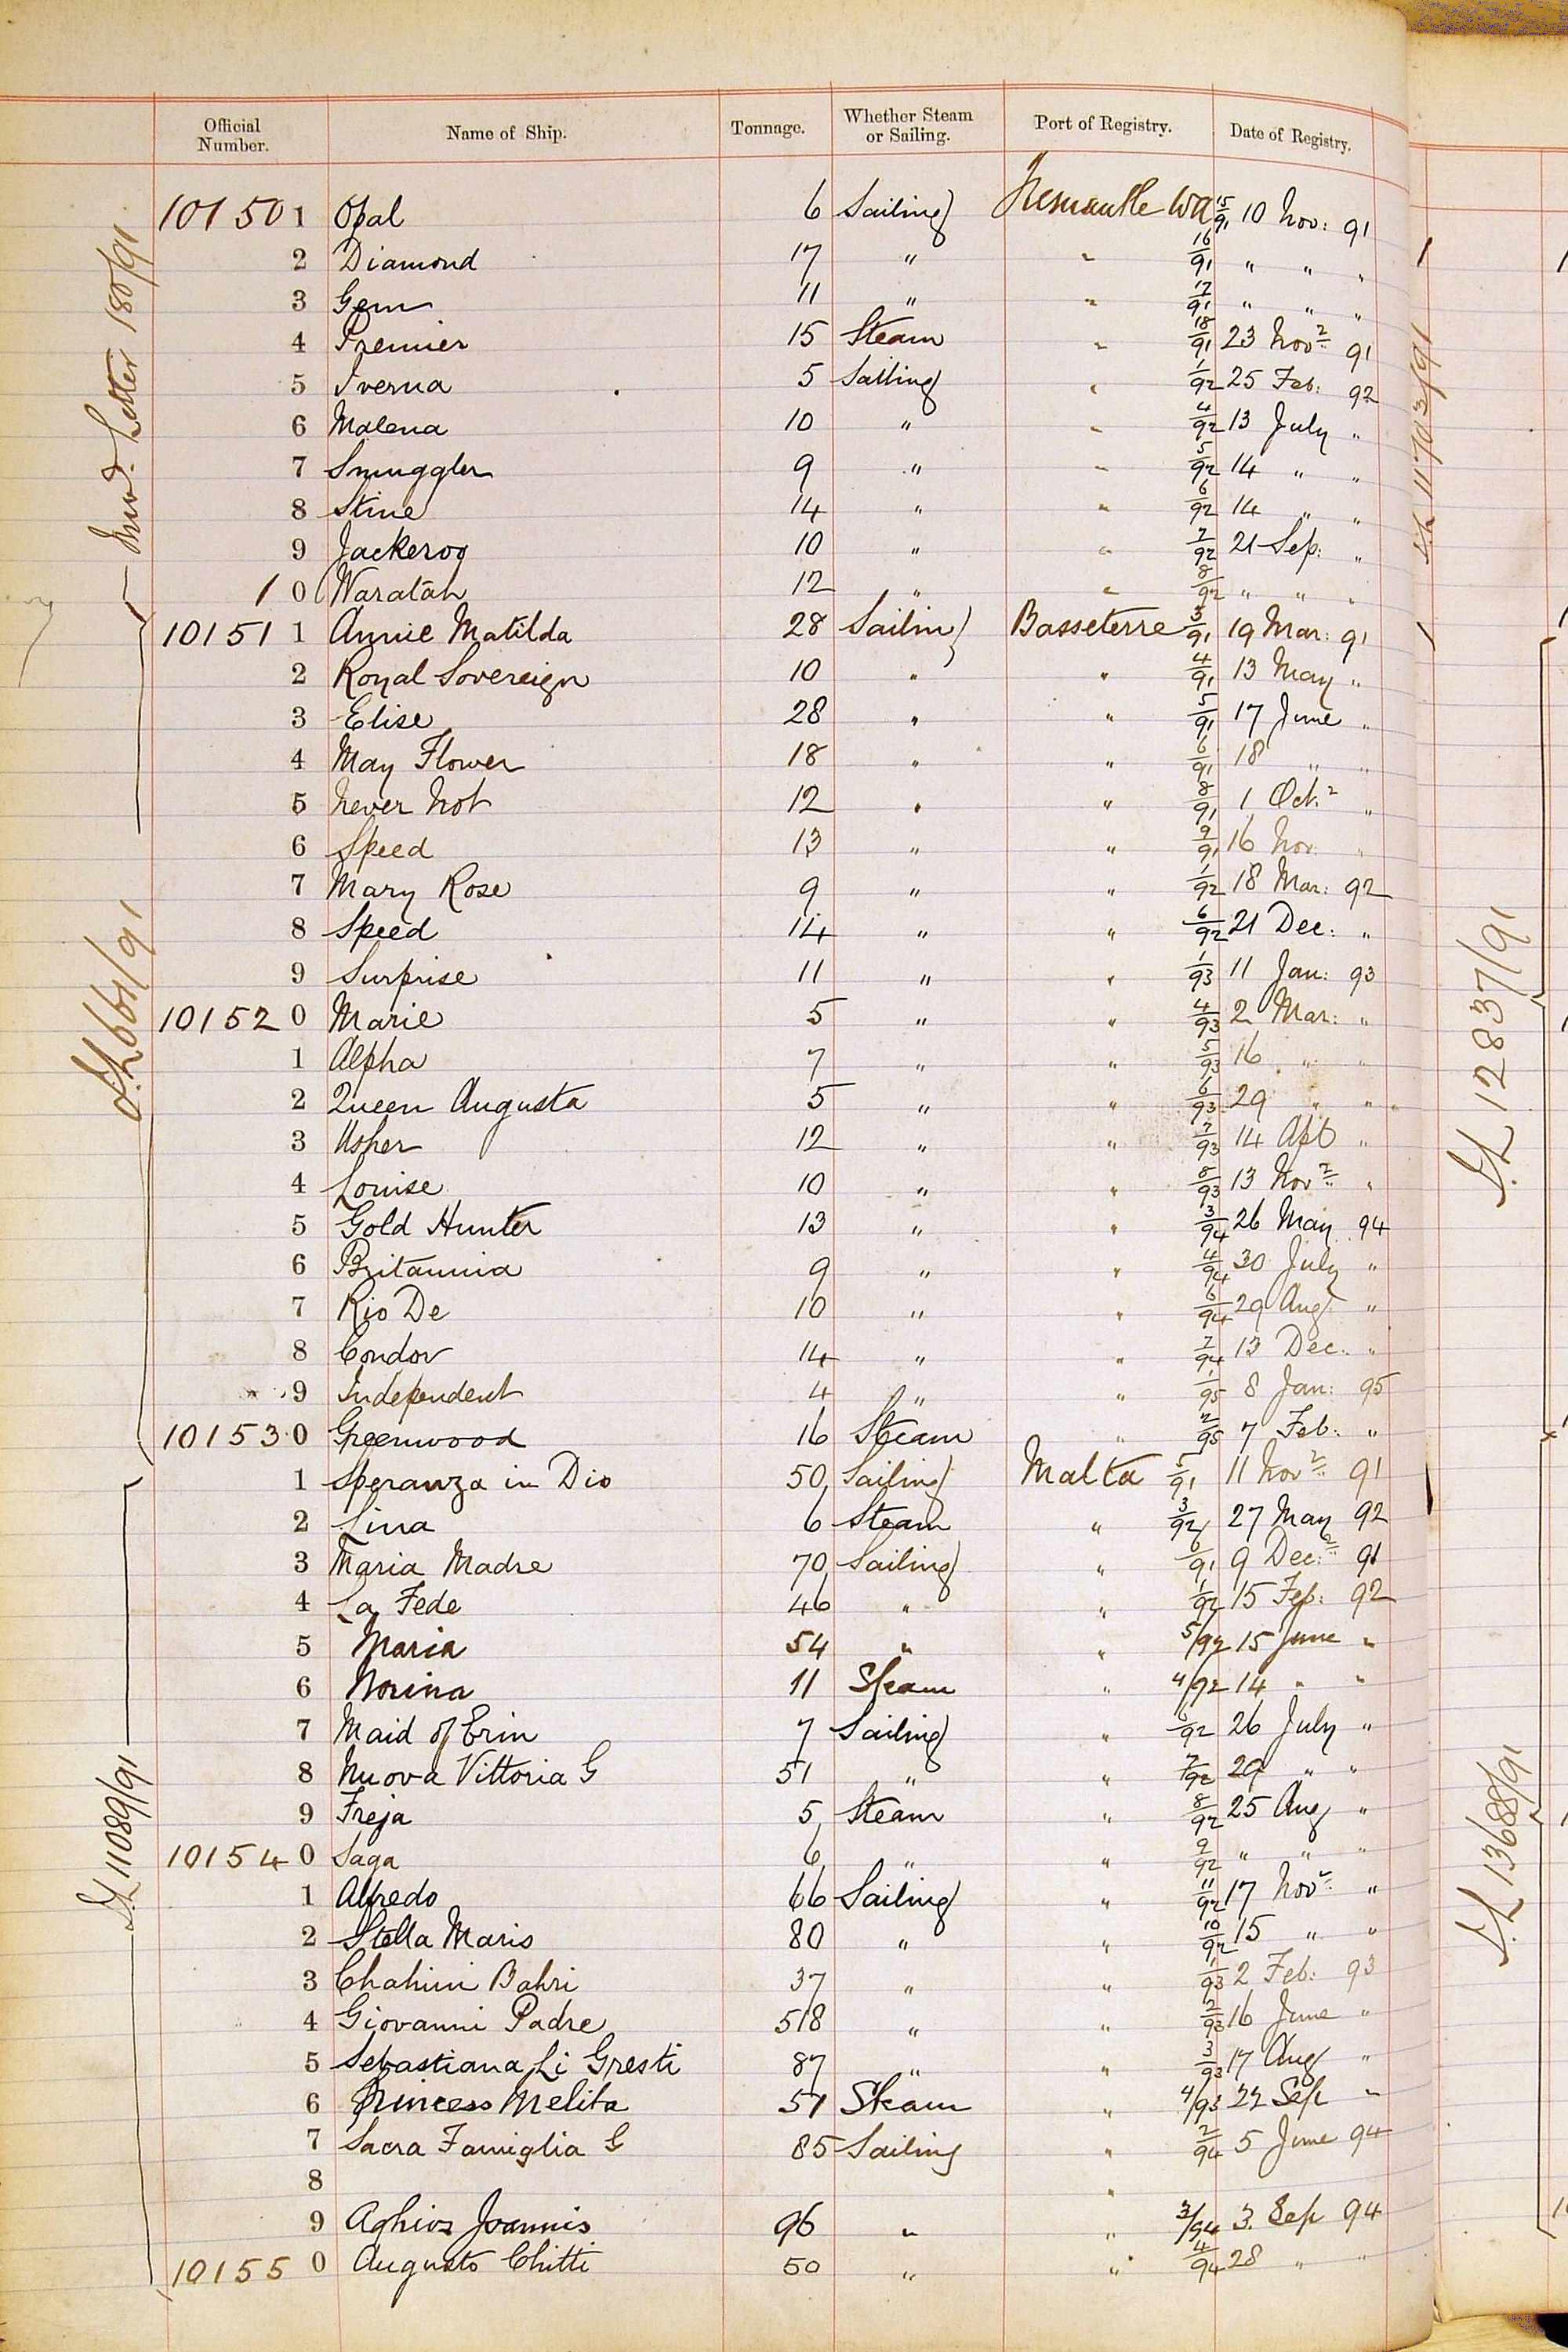 Official Number. Name of Ship. Tonnage. Whether Steam or Sailing. Port of Registry. Date of Registry.
101501 Opal 6 Sailing Fremantle WA 15/91 10 Nov: 91
2 Diamond 17 " " 16/91 " " "
3 Gem 11 " " 17/91 " " "
4 Premier 15 Steam " 18/91 23 Novr 91
5 Iverna 5 Sailing " 1/92 25 Feb: 92
6 Malena 10 " " 4/92 13 July "
7 Smuggler 9 " " 5/92 14 " "
8 Stine 14 " " 6/92 14 " "
9 Jackeroo 10 " " 7/92 21 Sep: "
10 Waratah 12 " " 8/92 " " "
101511 Annie Matilda 28 Sailing Basseterre 3/91 19 Mar: 91
2 Royal Sovereign 10 " " 4/91 13 May "
3 Elise 28 " " 5/91 17 June "
4 May Flower 18 " " 6/91 18 " "
5 Never Not 12 " " 8/91 1 Octr "
6 Speed 13 " " 9/91 16 Nov "
7 Mary Rose 9 " " 1/92 18 Mar: 92
8 Speed 14 " " 6/92 21 Dec: "
9 Surprise 11 " " 1/93 11 Jan: 93
101520 Marie 5 " " 4/93 2 Mar: "
1 Alpha 7 " " 5/93 16 " "
2 Queen Augusta 5 " " 6/93 29 " "
3 Usher 12 " " 7/93 14 "
4 Louise 10 " " 8/93 13 Novr "
5 Gold Hunter 13 " " 3/94 26 May 94
6 Britannia 9 " " 4/94 30 July "
7 Rio De 10 " " 6/94 29 Aug "
8 Condor 14 " " 7/94 13 Dec: "
9 Independent 4 " " 1/95 8 Jan: 95
101530 Greenwood 16 Steam " 2/95 7 Feb: "
1 Speranza in Dio 50 Sailing Malta 5/91 11 Novr 91
2 Lina 6 Steam " 3/92 27 May 92
3 Maria Madre 70 Sailing " 6/91 9 Decr 91
4 La Fede 46 " " 1/92 15 Feb: 92
5 Maria 54 " " 5/92 15 June "
6 Norina 11 Steam " 4/92 14 " "
7 Maid of Erin 7 Sailing " 6/92 26 July "
8 Nuova Vittoria G 51 " " 7/92 29 " "
9 Freja 5 Steam " 8/92 25 Aug "
101540 Saga 6 " " 9/92 " " "
1 Alfredo 66 Sailing " 11/92 17 Novr "
2 Stella Maris 80 " " 10/92 15 " "
3 Chahini Bahri 37 " " 1/93 2 Feb: 93
4 Giovanni Padre 518 " " 2/93 16 June "
5 Sebastiana Li Gresti 87 " " 3/93 17 Aug "
6 Princess Melita 51 Steam " 4/93 22 Sep "
7 Sacra Famiglia G 85 Sailing " 2/94 5 June 94
8 "
9 Aghios Joannis 96 " " 3/94 3. Sep 94
101550 Augusto Chitti 50 " " 4/94 28 " "
Letter 180/91
6661/91
11089/91
11703/91
12837/91
13688/91